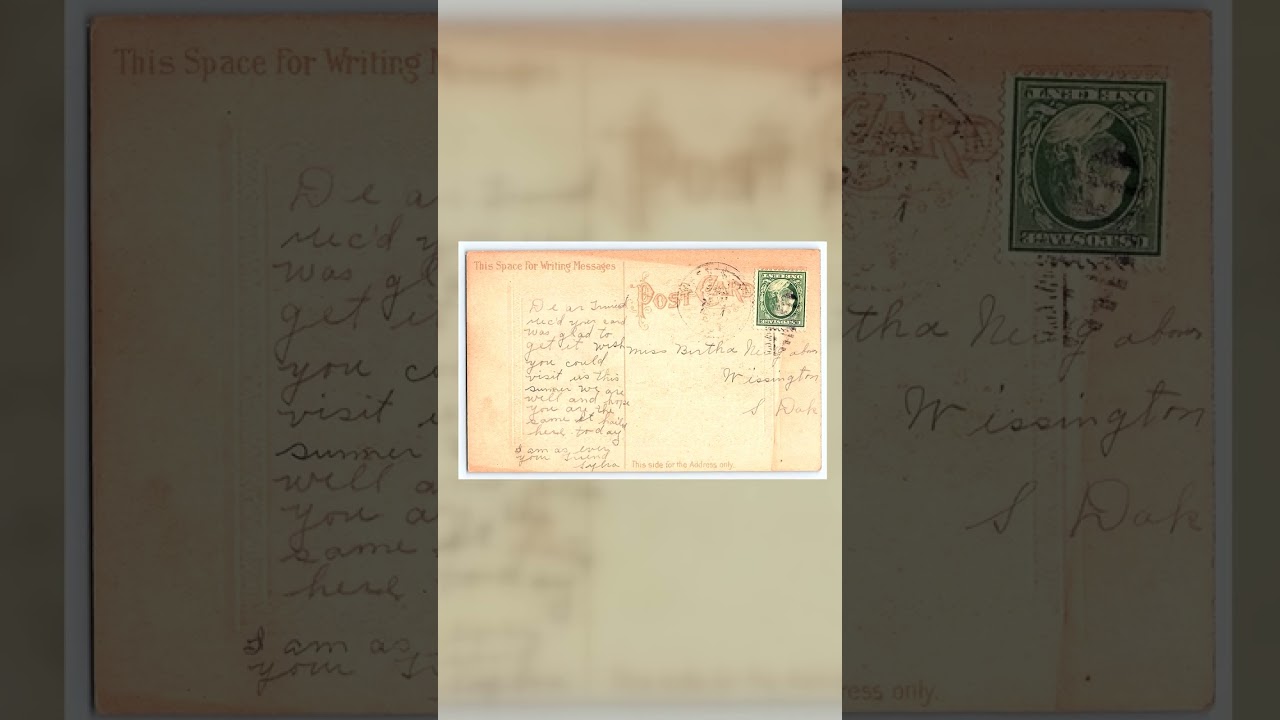 This Space For Writing Messages
Dear Friend
rec'd your card
was glad to
get it wish
you could
visit us this
summer we are
well and hope
you are the
same it
here today
I am as ever
your Friend
POST CARD
ONE CENT
U.S. POSTAGE
Miss Birtha
Wissington
S Dak
This side for the Address only.